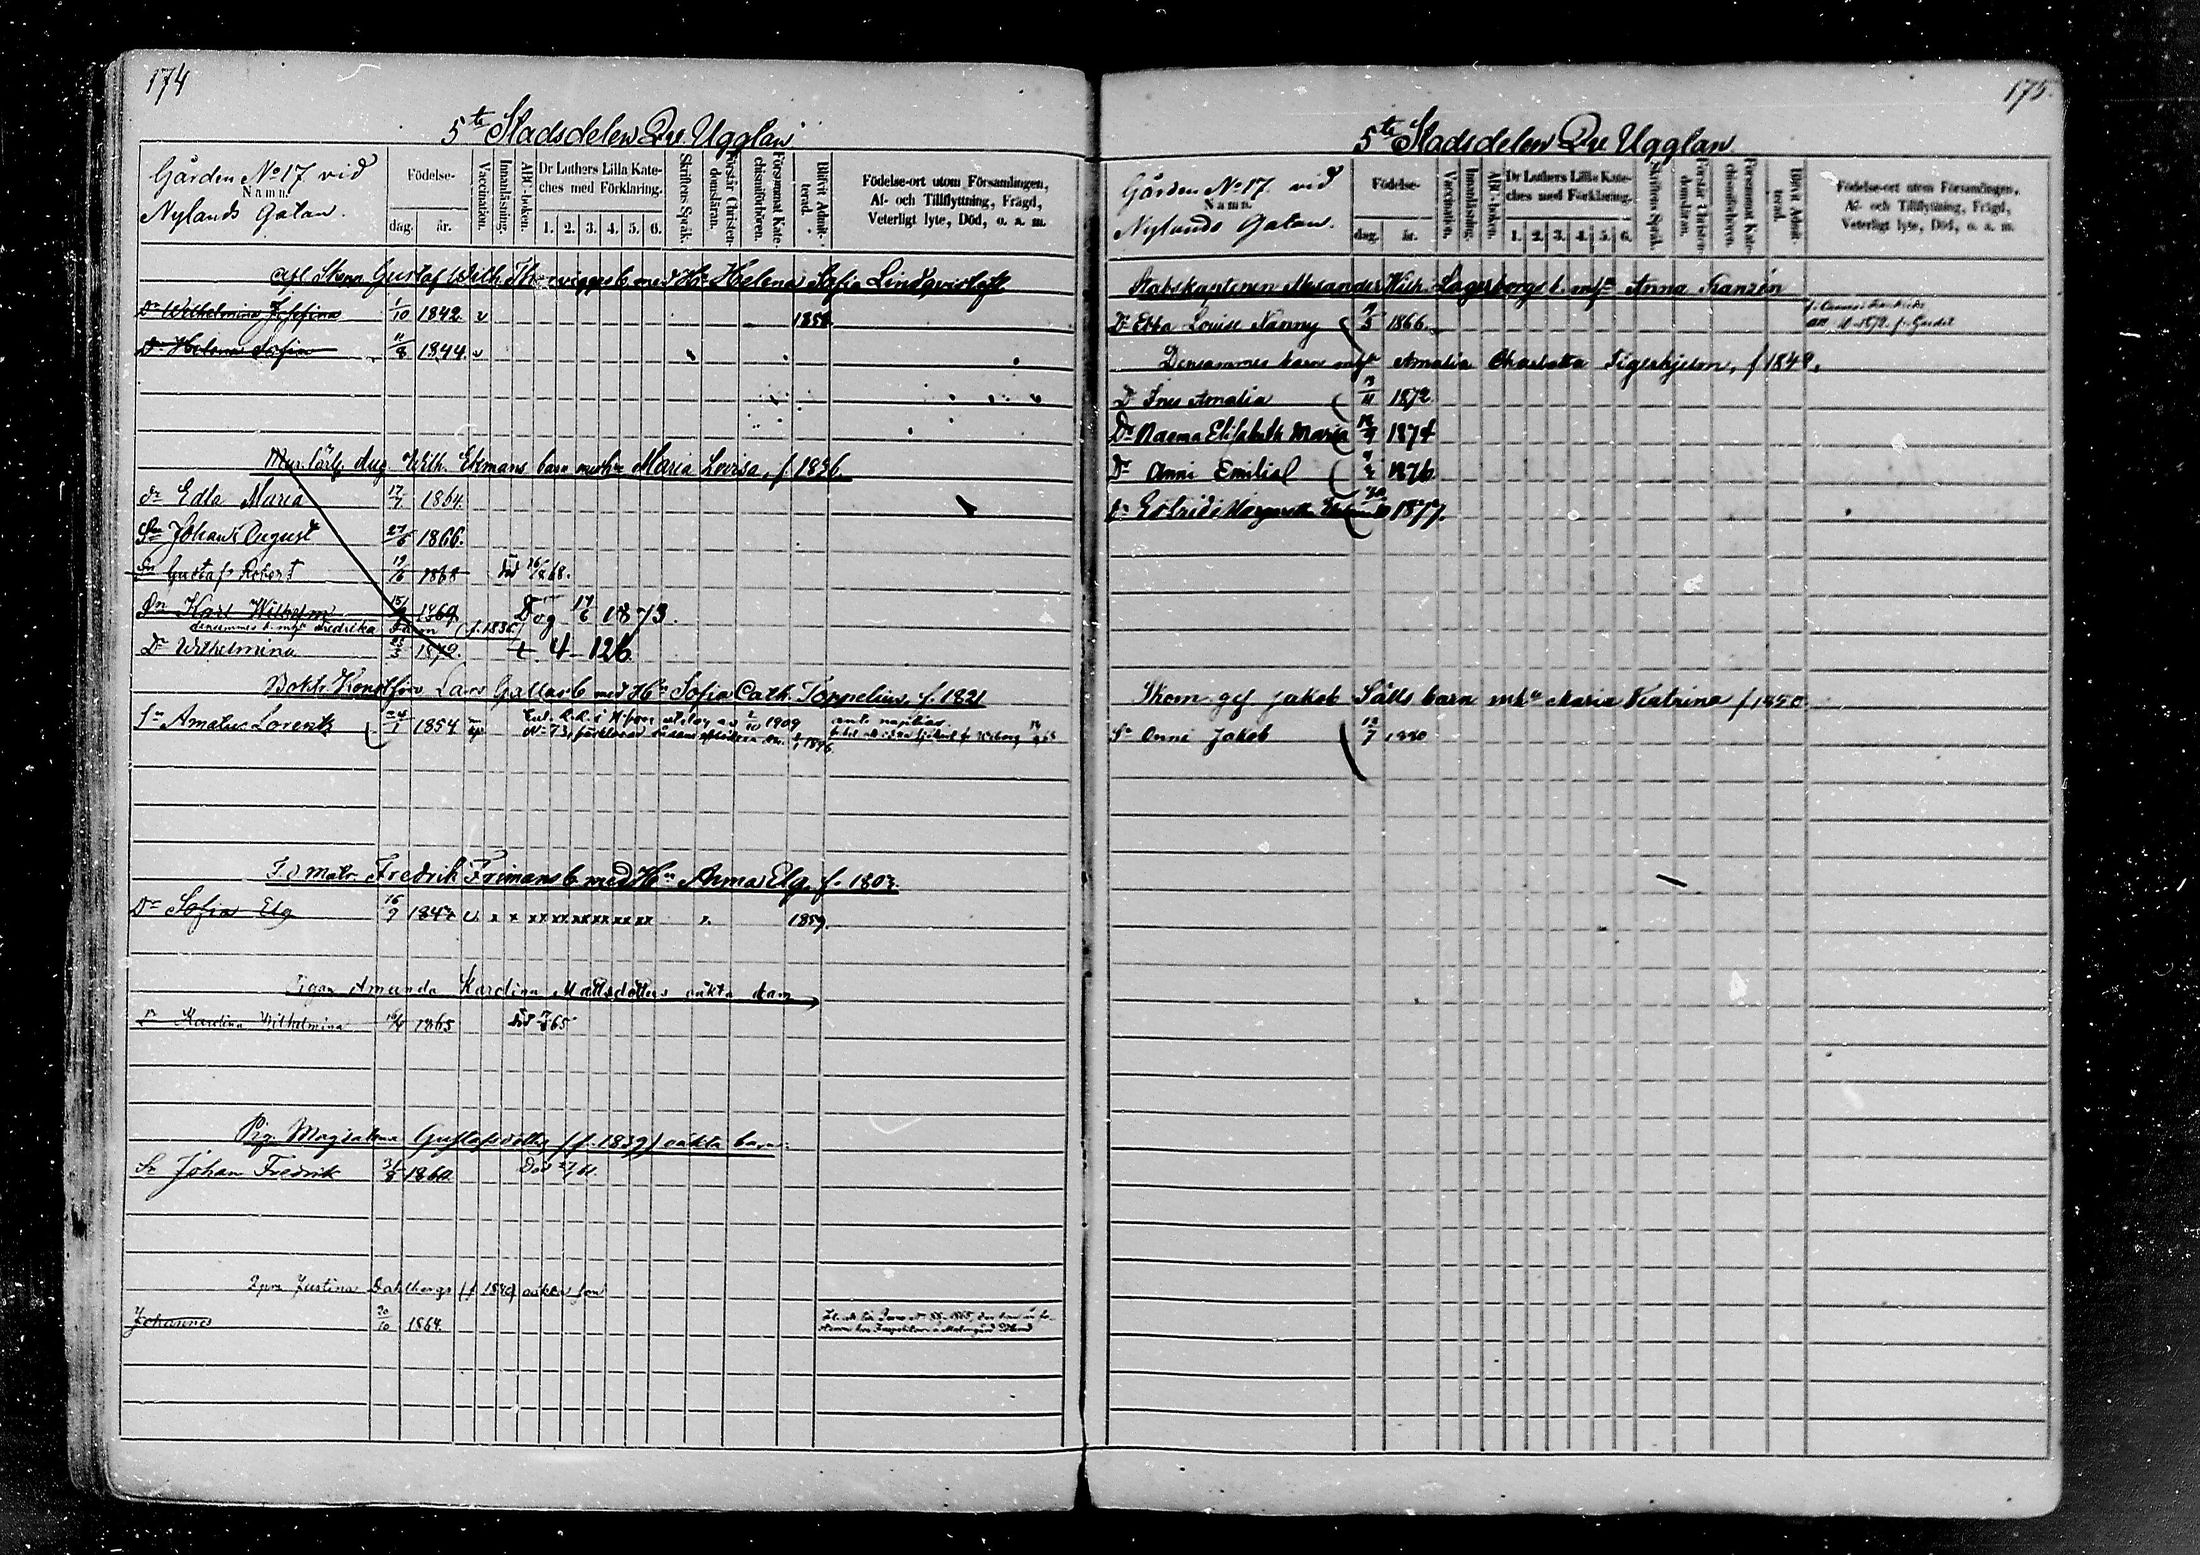 174
5te Stadsdelen Qv. Ugglan
Gården No 17 vid
Namn.
Nylands Gatan.
Födelse-
dag. år.
Vaccination.
Innanläsning.
ABC-boken.
Dr Luthers Lilla Kate-
ches med Förklaring.
1. 2. 3. 4. 5. 6.
Skriftens Språk.
Förstår Christen-
domsläran.
Försummat Kate-
chismiförhören.
Blifvit Admit-
terad.
Födelse-ort utom Församlingen,
Af- och Tillflyttning, Frägd,
Veterligt lyte, Död, o. a. m.
Gustaf Wilh. b med Hu Helena Sofia Lindqvist
Dr Wilhelmina Josefina 1/10 1842 v 1858
Dr Helena Sofia 11/8 1844 v
Aug. Wilh. Ekmans barn med hu Maria Lovisa, f. 1836
dr Edla Maria 17/7 1864
Sn Johan August 27/5 1866.
Sn Gustaf Robert 19/6 1868 död 26/8 68.
Sn Karl Wilhelm 1869 Dog 17/6 1873.
densammes b. m hu Fredrika (f. 1836)
Dr Wilhelmina 1872. t 4 - 126
Lars Gallus b med Hu Sofia Cath. Tornelius f. 1821
Sn Amatus Lorentz 24/1 1854 Enl. utslag av 2/10 1909
No 73, förklarad 1896.
Fredrik Frimans b med Hu Anna Elg. f. 1807
Dr Sofia Elg 16/7 1842 v. x x xx xx xx xx xx xx 1859.
Pigan Amanda Karolina Mattsdotters oäkta barn
Dr Karolina Wilhelmina 16/4 1865 död 65
Pig. Magdalena Gustafsdotters (f. 1839) oäkta barn
Sn Johan Fredrik 1860 Död 61.
Justina Dahlbergs (f 1840) oäkta son
Johannes 20/10 1864.
175.
5te Stadsdelen Qv Ugglan
Gården No 17. vid
Namn.
Nylands Gatan.
Födelse-
dag. år.
Vaccination.
Innanläsning.
ABC-boken.
Dr Luthers Lilla Kate-
ches med Förklaring.
1. 2. 3. 4. 5. 6.
Skriftens Språk.
Förstår Christen-
domsläran.
Försummat Kate-
chismiförhören.
Blifvit Admit-
terad.
Födelse-ort utom Församlingen,
Af- och Tillflyttning, Frägd,
Veterligt lyte, Död, o. a. m.
Stabskaptenen Alexander Wilh. Lagerborgs b. m hu Anna Franzén
Dr Ebba Louise Nanny 9/3 1866.
Densammes barn m hu Amalia Charlotta Tigerhjelm, f 1842.
Dr Ines Amalia 13/11 1872
Dr Naema Elisabeth Maria 1874
Dr Anni Emilia 1876
Dr Estrid Margaretha 1877.
Jakob Sälls barn m hu Maria Katrina f 1850
Sn Onni Jakob 12/7 1880